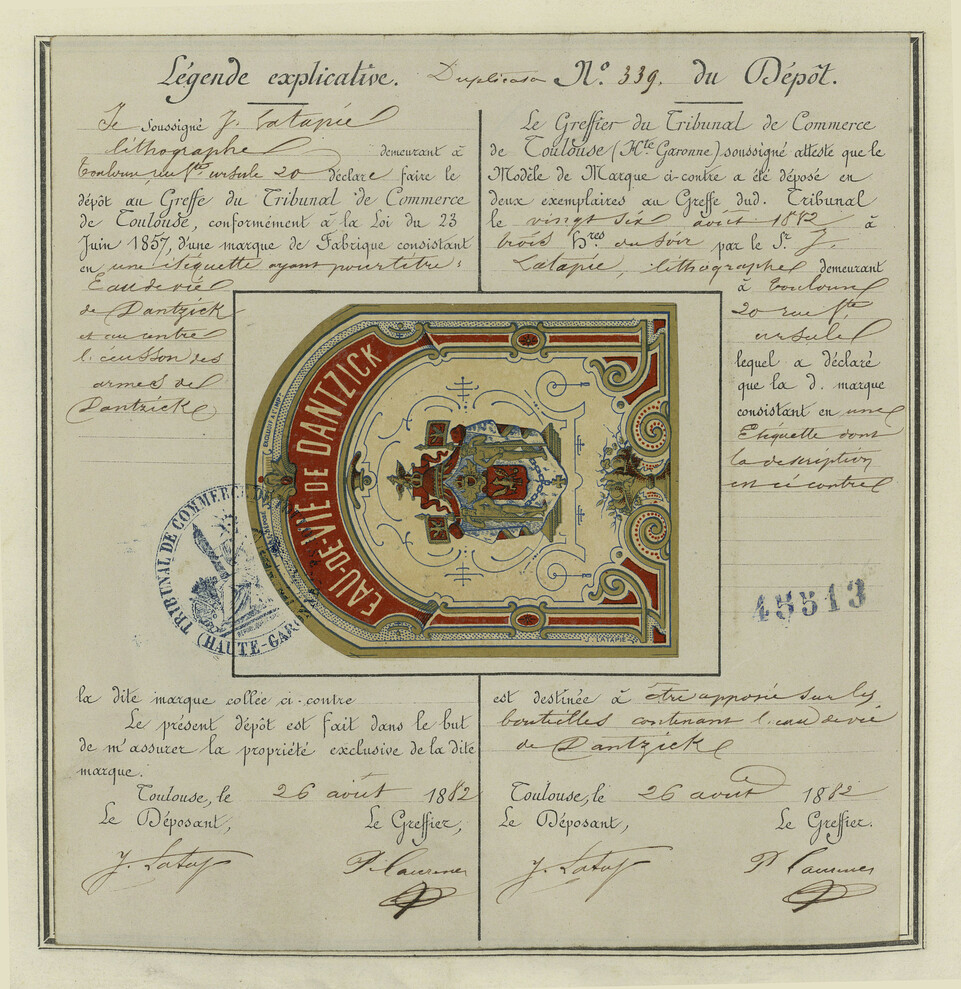 Légende explicative. Duplicata N.º 339. du Dépôt.
Je soussigné J. Latapie
lithographe demeurant à
Toulouse, rue Ste ursule 20 déclare faire le
dépôt au Greffe du Tribunal de Commerce
de Toulouse, conformément à la Loi du 23
Juin 1857, d'une marque de Fabrique consistant
en une étiquette ayant pour titre:
Eau de vie
de Dantzick
et au centre
l'écusson des
armes de
Dantzick
Le Greffier du Tribunal de Commerce
de Toulouse (Hte Garonne) soussigné atteste que le
Modèle de Marque ci-contre a été déposé en
deux exemplaires au Greffe dud. Tribunal
le vingt six août 1882 à
trois Hres du soir par le Sr. J.
Latapie, lithographe demeurant
à toulouse
20 rue Ste
ursule
lequel a déclaré
que la d. marque
consistant en une
Etiquette dont
la description
est ci contre
EAU-DE-VIE DE DANTZICK
TRIBUNAL DE COMMERCE
(HAUTE-GARONNE)
45513
la dite marque collée ci-contre
Le présent dépôt est fait dans le but
de m'assurer la propriété exclusive de la dite
marque.
Toulouse, le 26 août 1882
Le Déposant, Le Greffier,
J. Latap
est destinée à être apposée sur les
bouteilles contenant l'eau de vie
de Dantzick
Toulouse, le 26 août 1882
Le Déposant, Le Greffier.
J. Latap